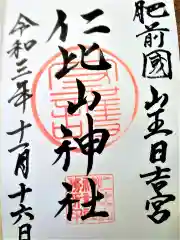 肥前國 山王日吉宮
仁比山神社
令和三年十一月十六日